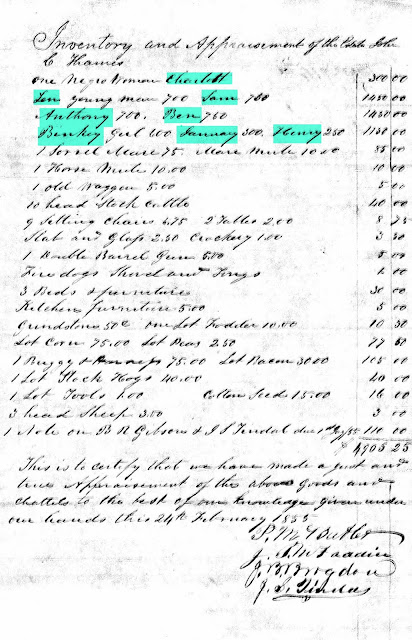 Inventory and Appraisement of the Estate John
C Thames
one Negro Woman Charlott 300 00
young man 700 Sam 750 1450 00
Anthony 700. Ben 750 1450 00
Girl 600 January 300. Henry 250 1150 00
1 Sorrel Mare 75. Mare Mule 10.00 85 00
1 Horse Mule 10.00 10 00
1 old Waggon 5.00 5 00
10 head Stock Cattle 40 00
9 Setting Chairs 6.75 2 Tables 2.00 8 75
Slat and Glass 2.50 Crockery 1.00 3 50
1 Double Barrel Gun 5.00 5 00
Fire dogs Shovel and Tongs 1 00
3 Beds & furniture 30 00
Kitchen furniture 5.00 5 00
Grindstone 50c one Lot Fodder 10.00 10 50
Lot Corn 75.00 Lot Peas 2.50 77 50
1 Buggy & Harness 75.00 Lot Bacon 30 00 105 00
1 Lot Stock Hogs 40.00 40 00
1 Lot Tools 1.00 Cotton Seeds 15.00 16 00
3 head Sheep 3.00 3 00
1 Note on B R Gibsons & J S Tindal due 1st 110 00
4905 25
This is to certify that we have made a just and
true Appraisement of the above goods and
chattels to the best of our knowledge given under
our hands this 24th February 1855
J. B Brogdon
J. S. Tindal